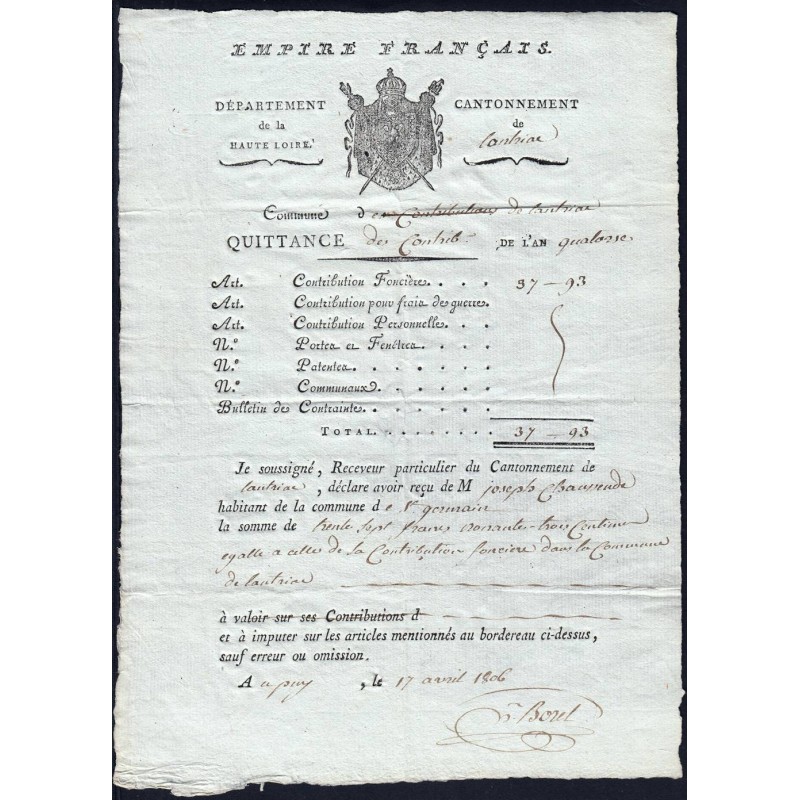 EMPIRE FRANÇAIS.
DÉPARTEMENT
de la
HAUTE LOIRE.
CANTONNEMENT
de
lantriac
Commune de Contributions de lantriac
QUITTANCE des Contrib. DE L'AN quatorse
Art. Contribution Foncière. . . . 37 — 93
Art. Contribution pour frais de guerre.
Art. Contribution Personnelle. . . .
N.º Portes et Fenêtres. . . . .
N.º Patentes. . . . . . .
N.º Communaux. . . . . .
Bulletin de Contrainte. . . . . . .
TOTAL. . . . . . . . . 37 — 93
Je soussigné, Receveur particulier du Cantonnement de
lantriac, déclare avoir reçu de M joseph Chaussende
habitant de la commune de St germain
la somme de trente sept francs nonante-trois Centimes
egalle a celles de la Contribution fonciere dans la Commune
de lantriac
à valoir sur ses Contributions d
et à imputer sur les articles mentionnés au bordereau ci-dessus,
sauf erreur ou omission.
A u puy, le 17 avril 1806
Borel